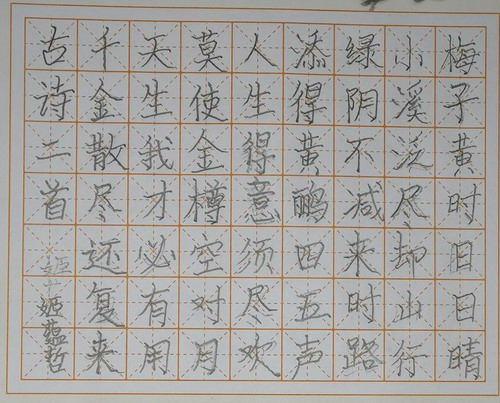 梅子黄时日日晴
小溪泛尽却山行
绿阴不减来时路
添得黄鹂四五声
人生得意须尽欢
莫使金樽空对月
天生我才必有用
千金散尽还复来
古诗二首
姬蕴哲